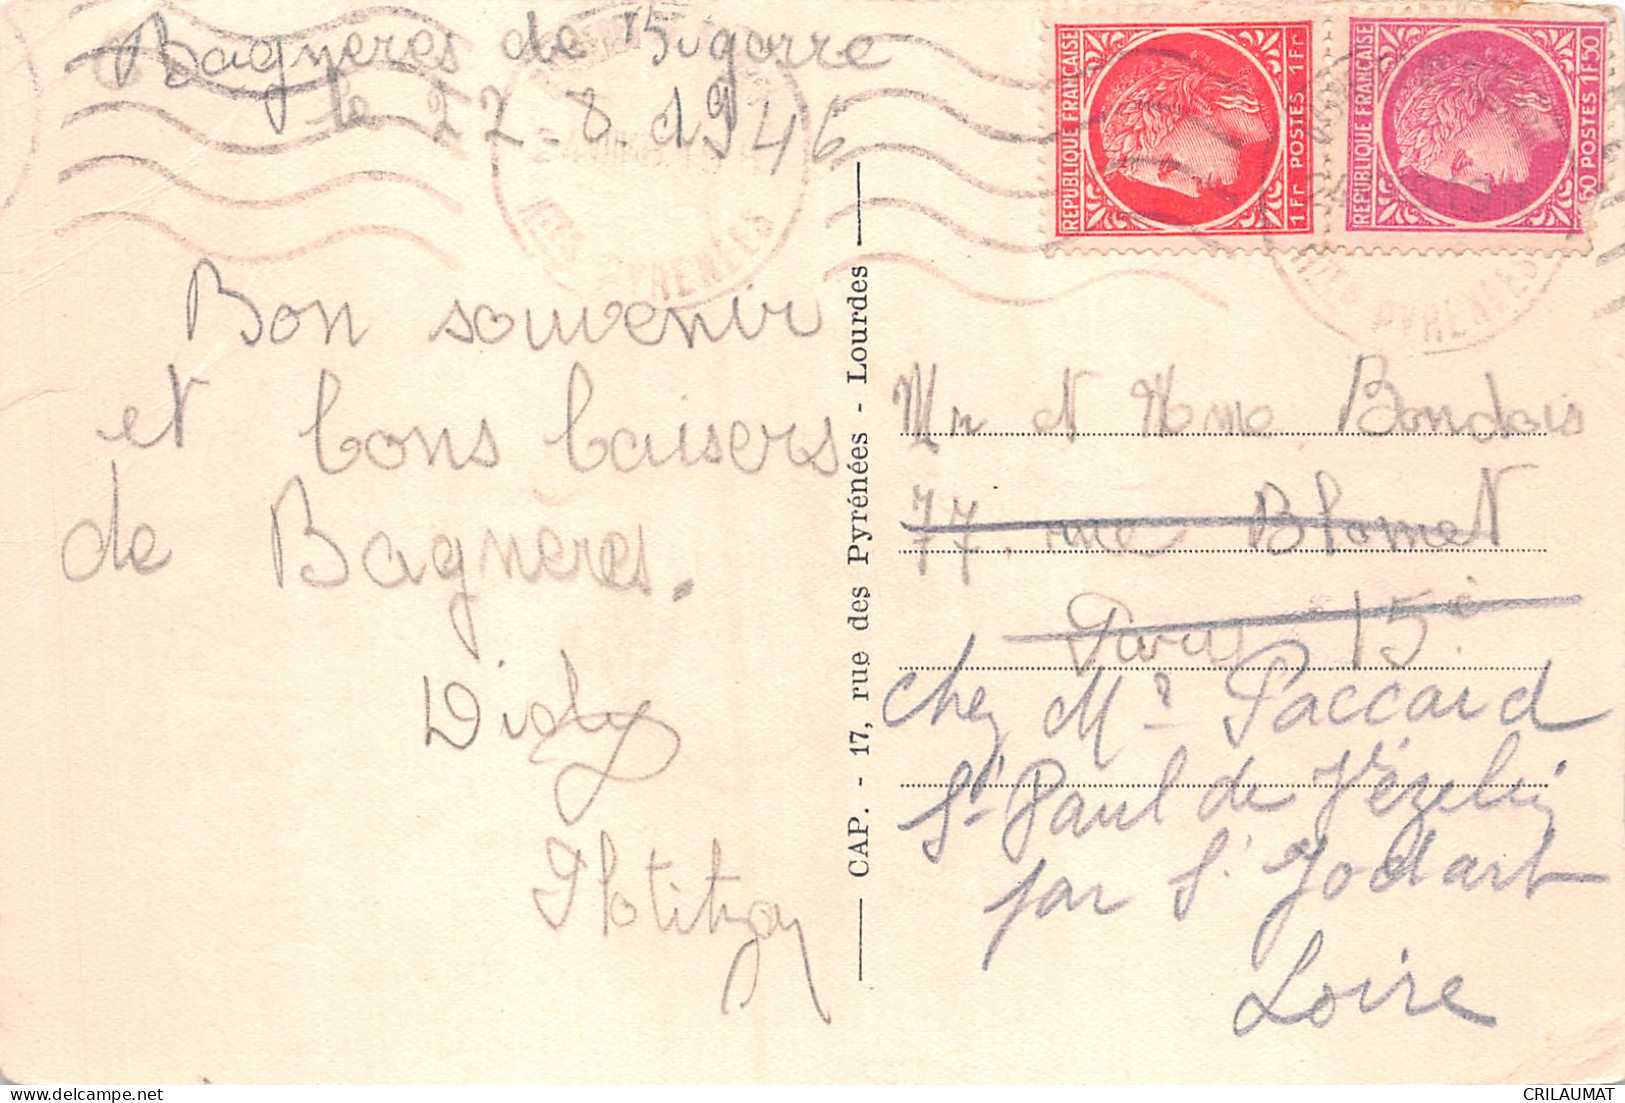 Bagnères de Bigorre
le 22-8-1946
Bon souvenir
et bons baisers
de Bagnères.
Didy
CAP. - 17, rue des Pyrénées - Lourdes
REPUBLIQUE FRANÇAISE
1 Fr POSTES 1 Fr
REPUBLIQUE FRANÇAISE
POSTES 1F50
HTES PYRENEES
HTES PYRENEES
Mr et Mme Bondois
77, rue Blomet
Paris 15è
chez Mr Paccard
St Paul de Vézelin
par St Jodart
Loire
www.delcampe.net
CRILAUMAT